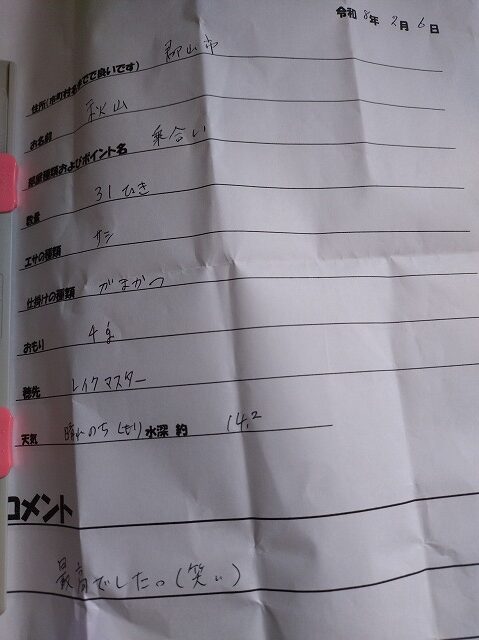 令和 8年 2月 6日
住所(市町村までで良いです) 郡山市
お名前 秋山
部屋種類およびポイント名 乗合い
数量 31ひき
エサの種類 サシ
仕掛けの種類 がまかつ
おもり 4g
穂先 レイクマスター
天気 晴れのちくもり 水深 約 14.2
コメント
最高でしたっ(笑い)